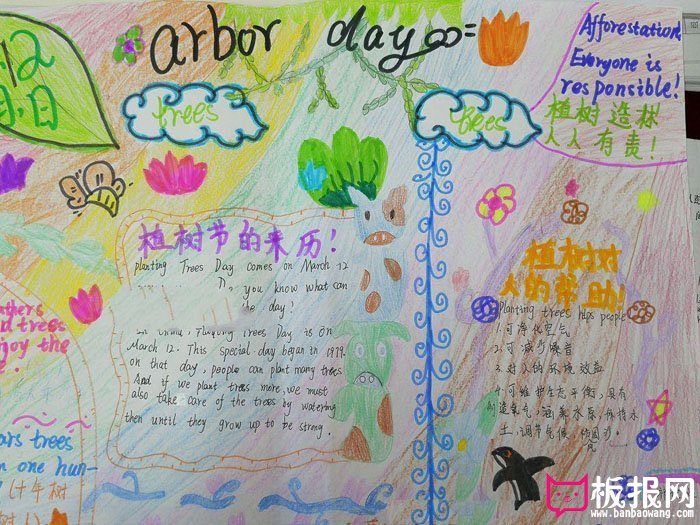 arbor day
12
日
trees
trees
Afforestation
Everyone is
responsible!
植树造林
人人有责!
植树节的来历!
planting Trees Day comes on March 12
you know what can
the day!
Trees Day is on
March 12. This special day began in 1979.
on that day, people can plant many trees
And if we plant trees more, we must
also take care of the trees by watering
then until they grow up to be strong.
植树对
人的帮助!
Planting trees helps people
1.可净化空气
2.可减少噪音
3.对人的环境效益
4.可维护生态平衡,具有
制造氧气,涵养水原,保持水
土,调节气候,防风
trees
joy the
ars trees
n one hun-
(十年树
板报网
www.banbaowang.com